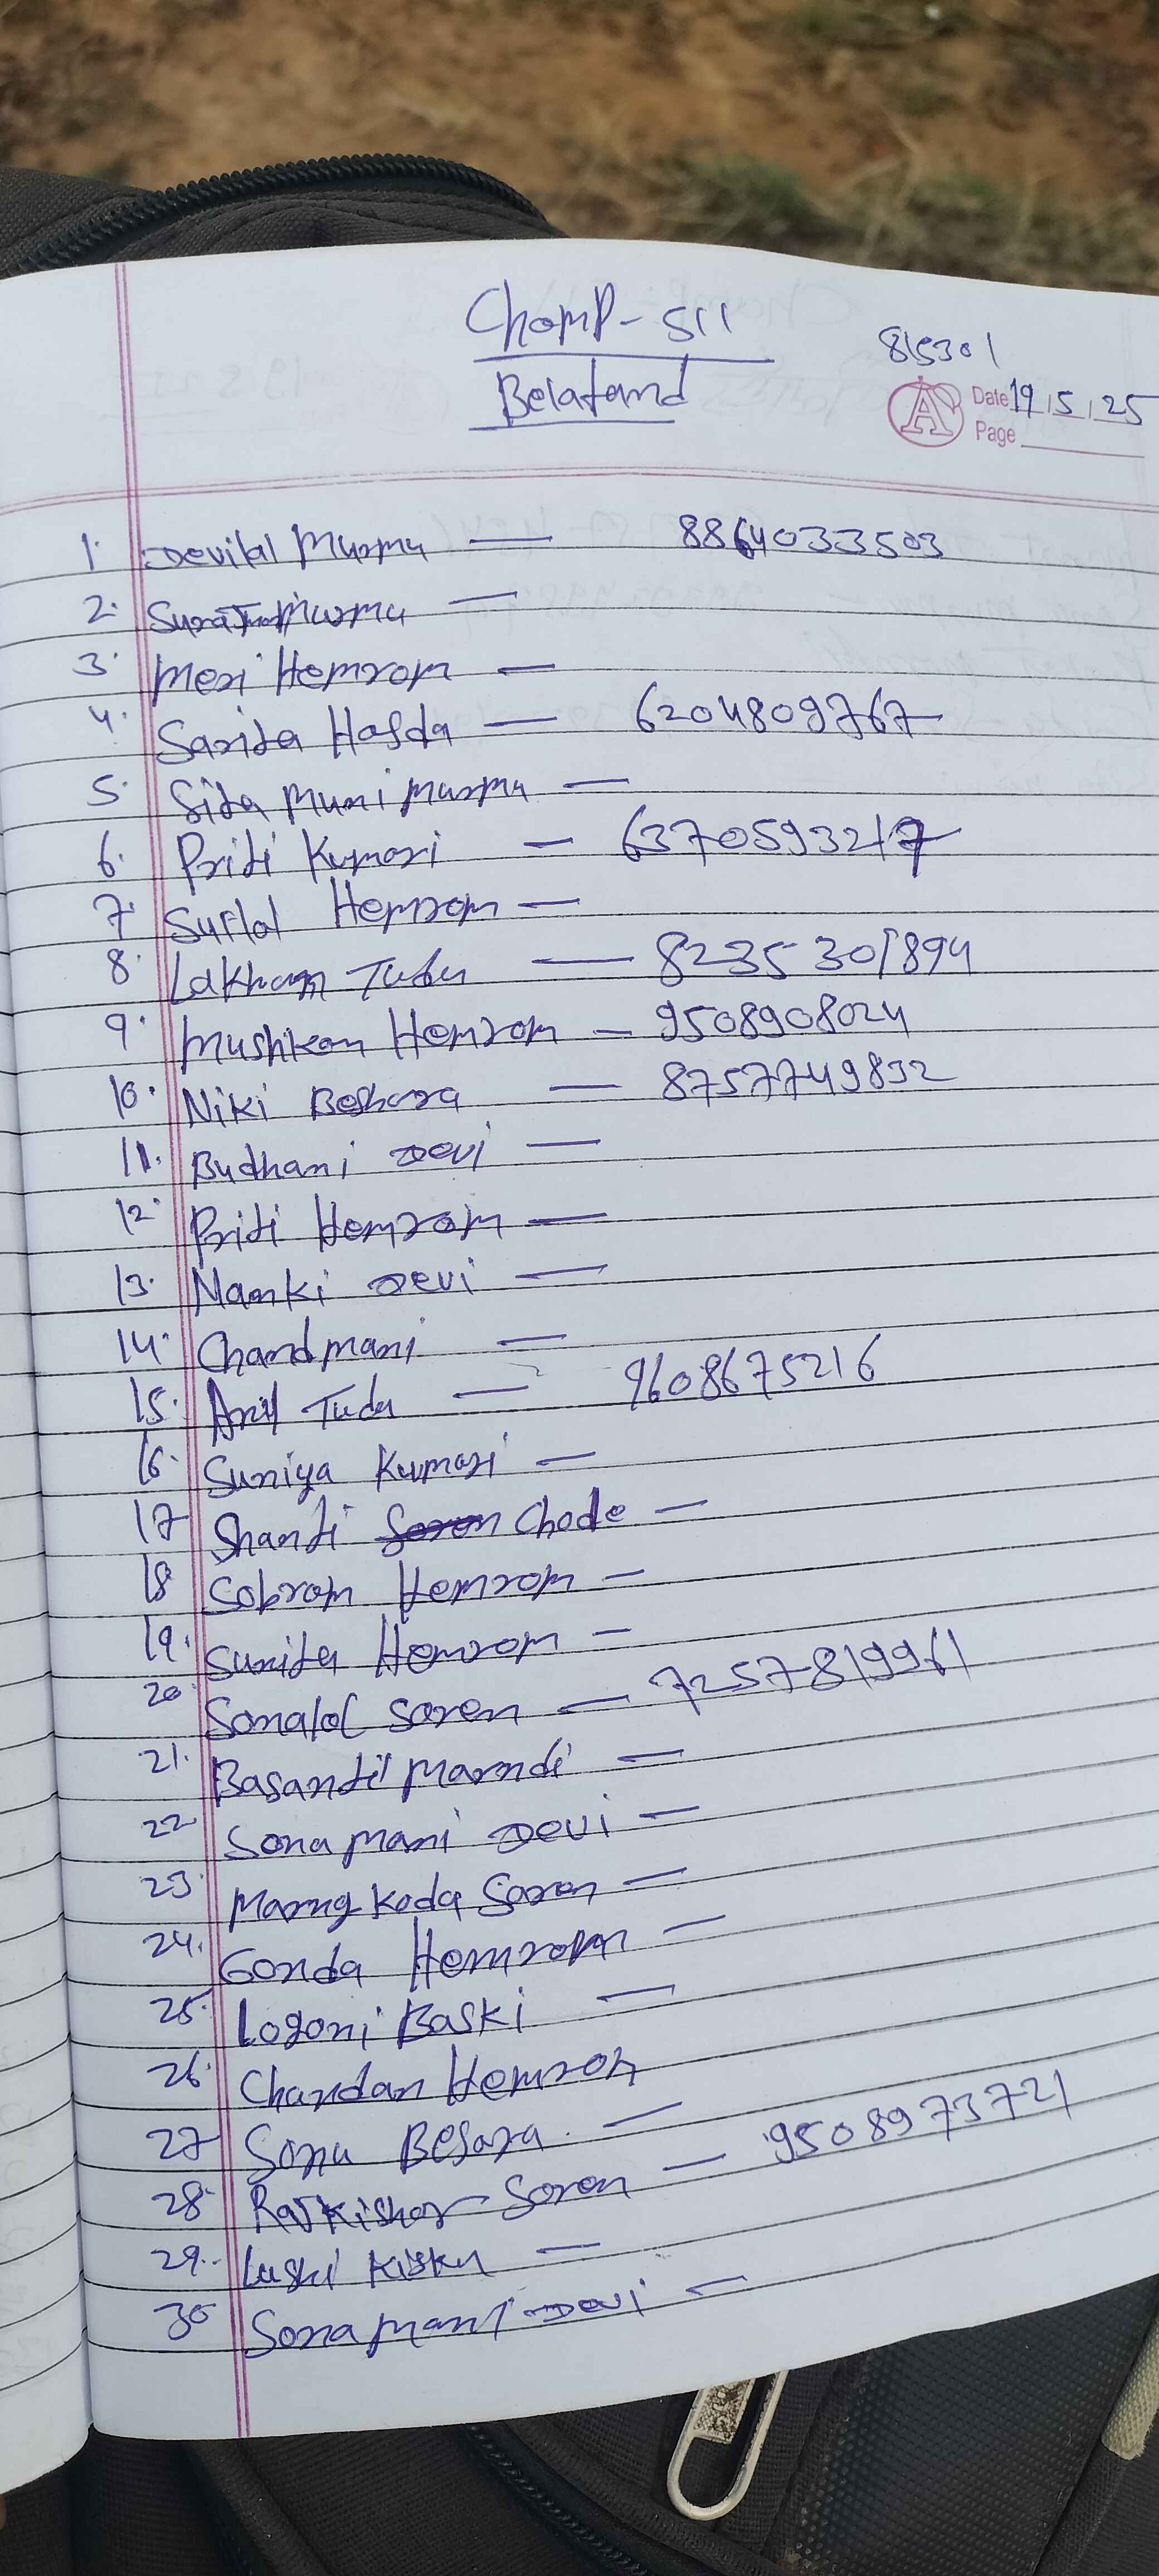 ChomP- S11
Belatand
815301
A
Date 19.5.25
Page
1. Devilal Murmu — 8864033503
2. Murmu —
3. Meri Hemrom —
4. Sarita Hasda — 6204809767
5. Sita Muni Murmu —
6. Priti Kumari — 6370593217
7. Surlal Hemrom —
8. Lakham Tudu — 8235301894
9. Mushkan Hemrom — 9508908024
10. Niki Beshara — 8757749832
11. Budhani Devi —
12. Priti Hemrom —
13. Manki Devi —
14. Chandmani —
15. Anil Tudu — 9608675216
16. Suniya Kumari —
17 Shanti Soren Chode —
18 Sobrom Hemrom —
19. Sunita Hemrom —
20 Sonalal Soren — 7257819961
21. Basanti Marndi —
22 Sona Mani Devi —
23. Marng Koda Soren —
24. Gonda Hemrom —
25. Logoni Baski —
26. Chandan Hemrom
27 Sonu Besara —
28. Rajkishor Soren — 9508973721
29. Luski Kisku —
30 Sona Mani Devi —